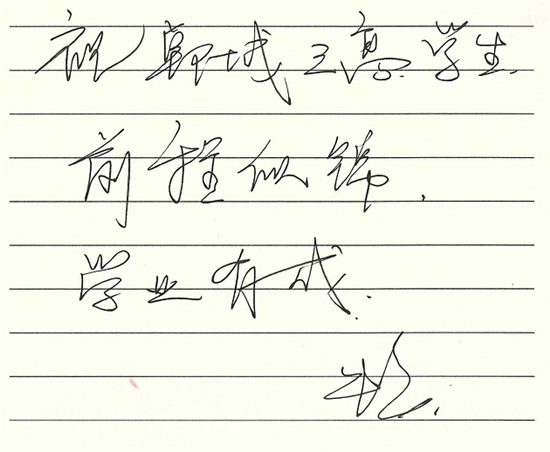 祝郸城三高学生
前程似锦.
学业有成.